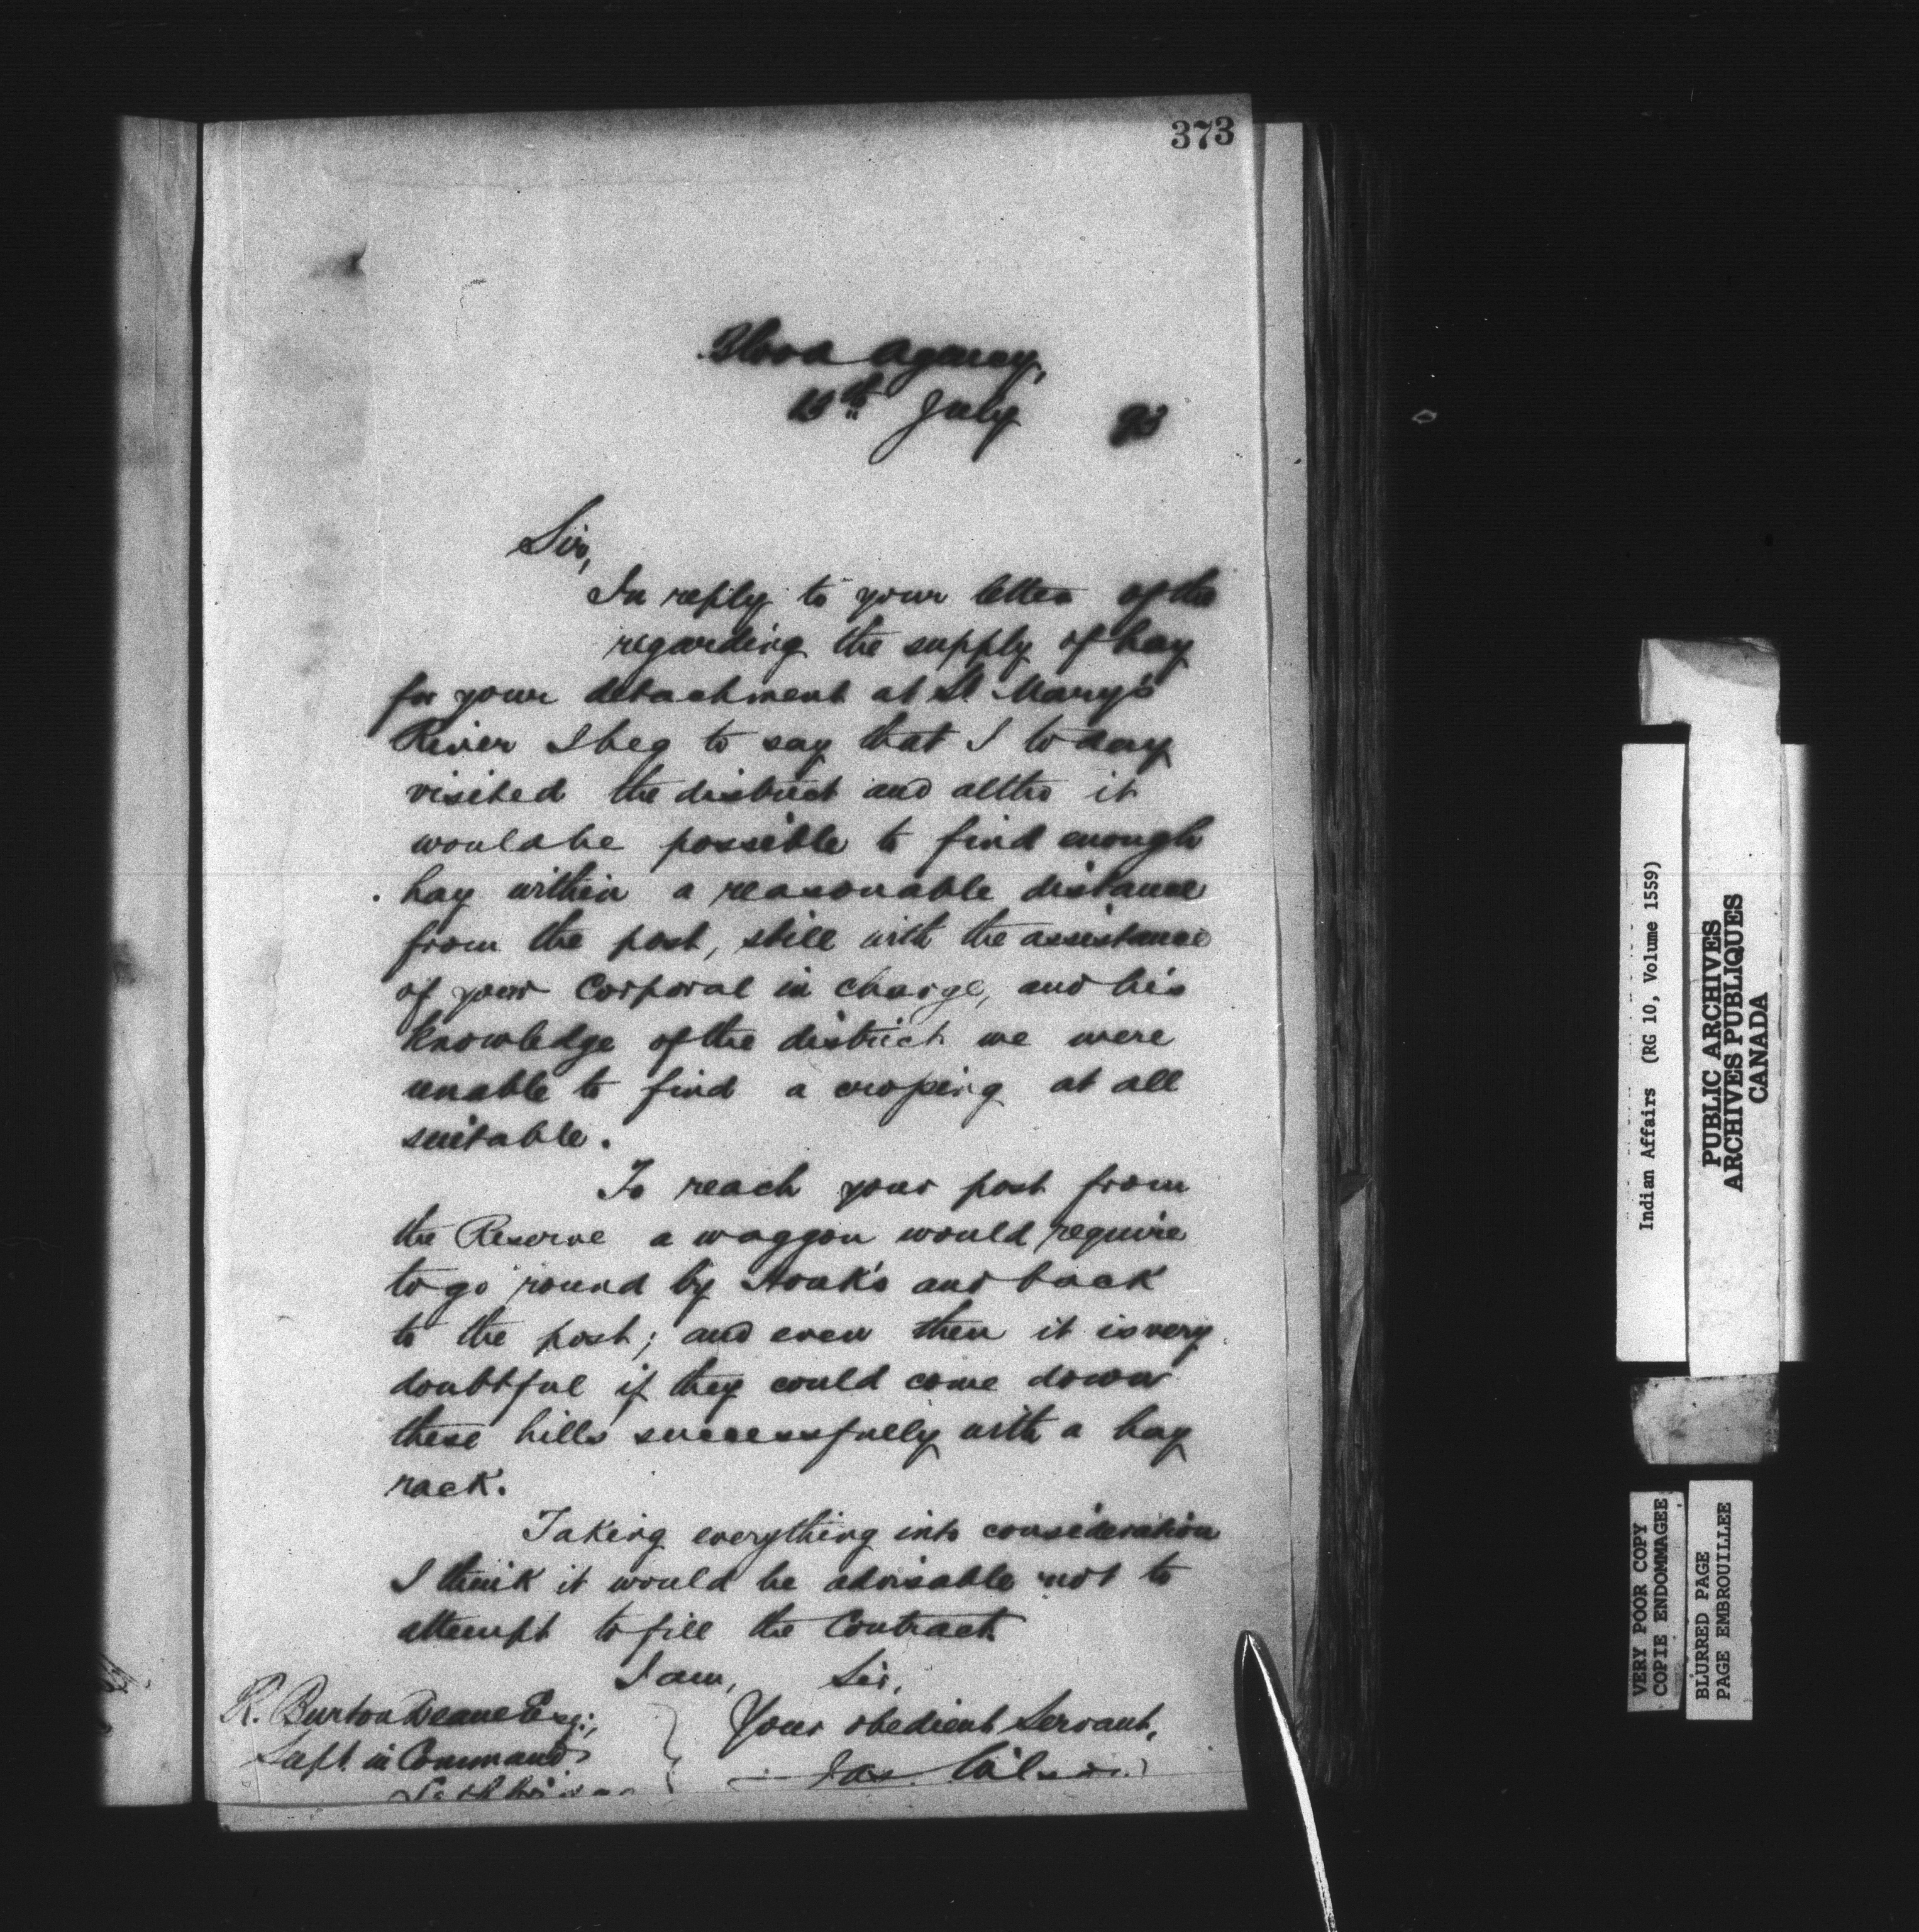 373
Blood Agency,
July 93
Sir,
In reply to your letter of the
regarding the supply of hay
for your detachment at St. Mary's
River I beg to say that I to day
visited the district and altho it
would be possible to find enough
hay within a reasonable distance
from the post, still with the assistance
of your Corporal in charge, and his
knowledge of the district we were
unable to find a croping at all
suitable.
To reach your post from
the Reserve a waggon would require
to go round by and back
to the post; and even then it is very
doubtful if they could come down
these hills successfully with a hay
rack.
Taking everything into consideration
I think it would be advisable not to
attempt to fill the Contract
I am, Sir,
Your obedient Servant,
Jas. Wilson
R. Burton Deane Esq.,
Supt. in Command
Lethbridge
Indian Affairs (RG 10, Volume 1559)
PUBLIC ARCHIVES
ARCHIVES PUBLIQUES
CANADA
VERY POOR COPY
COPIE ENDOMMAGEE
BLURRED PAGE
PAGE EMBROUILLEE